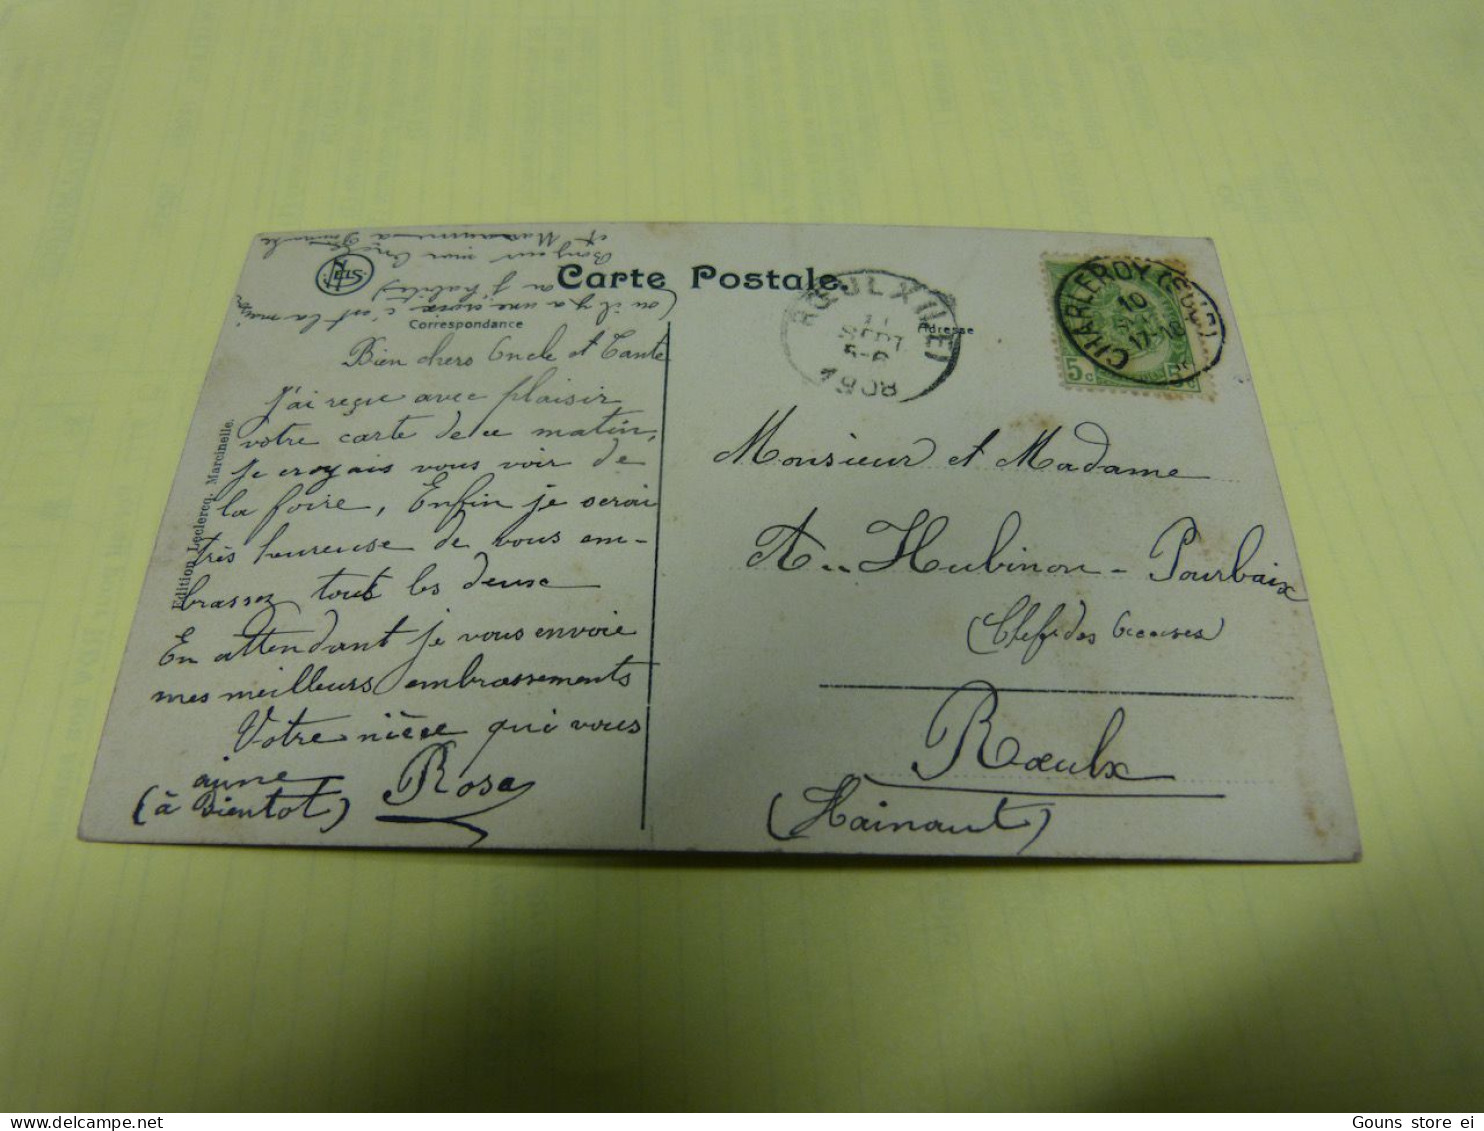 Carte Postale.
Correspondance
Adresse
Edition Leclercq, Marcinelle.
ROEULX (LE)
11
SEPT
5-6
1908
CHARLEROY (SUD)
10
SEPT
17-18
5c 5c
(ou il y a une croix c'est la maison
ou j'habite)
Bonjour mon
et
Bien chers Oncle et Tante
J'ai reçue avec plaisir
votre carte de ce matin,
je croyais vous voir de
la foire, Enfin je serai
très heureuse de vous em-
brassez tout les deuse
En attendant je vous envoie
mes meilleurs embrassements
Votre nièce qui vous
aime
(à Bientot) Rosa
Monsieur et Madame
A.. Hubinon - Pourbaix
Rœulx
(Hainaut)
Gouns store ei